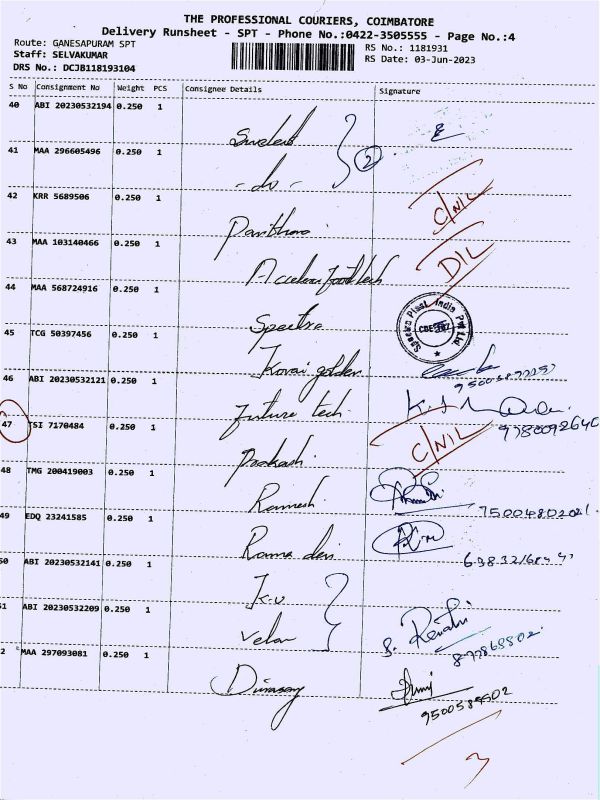 THE PROFESSIONAL COURIERS, COIMBATORE
Delivery Runsheet - SPT - Phone No.:0422-3505555 - Page No.:4
Route: GANESAPURAM SPT
RS No.: 1181931
Staff: SELVAKUMAR
RS Date: 03-Jun-2023
DRS No.: DCJB118193104
S No Consignment No Weight PCS Consignee Details Signature
40 ABI 20230532194 0.250 1
41 MAA 296605496 0.250 1 - do -
2
42 KRR 5689506 0.250 1
C/NIL
43 MAA 103140466 0.250 1
DIL
44 MAA 568724916 0.250 1 Spectra
Spectra Plast India Pvt Ltd
45 TCG 50397456 0.250 1 Kovai golden
46 ABI 20230532121 0.250 1 Future tech
47 TSI 7170484 0.250 1 Prakash
C/NIL
48 TMG 200419003 0.250 1 Ramesh
49 EDQ 23241585 0.250 1 Rama devi
50 ABI 20230532141 0.250 1 K.V
51 ABI 20230532209 0.250 1 Velan
S. Revathi
2 MAA 297093081 0.250 1
3